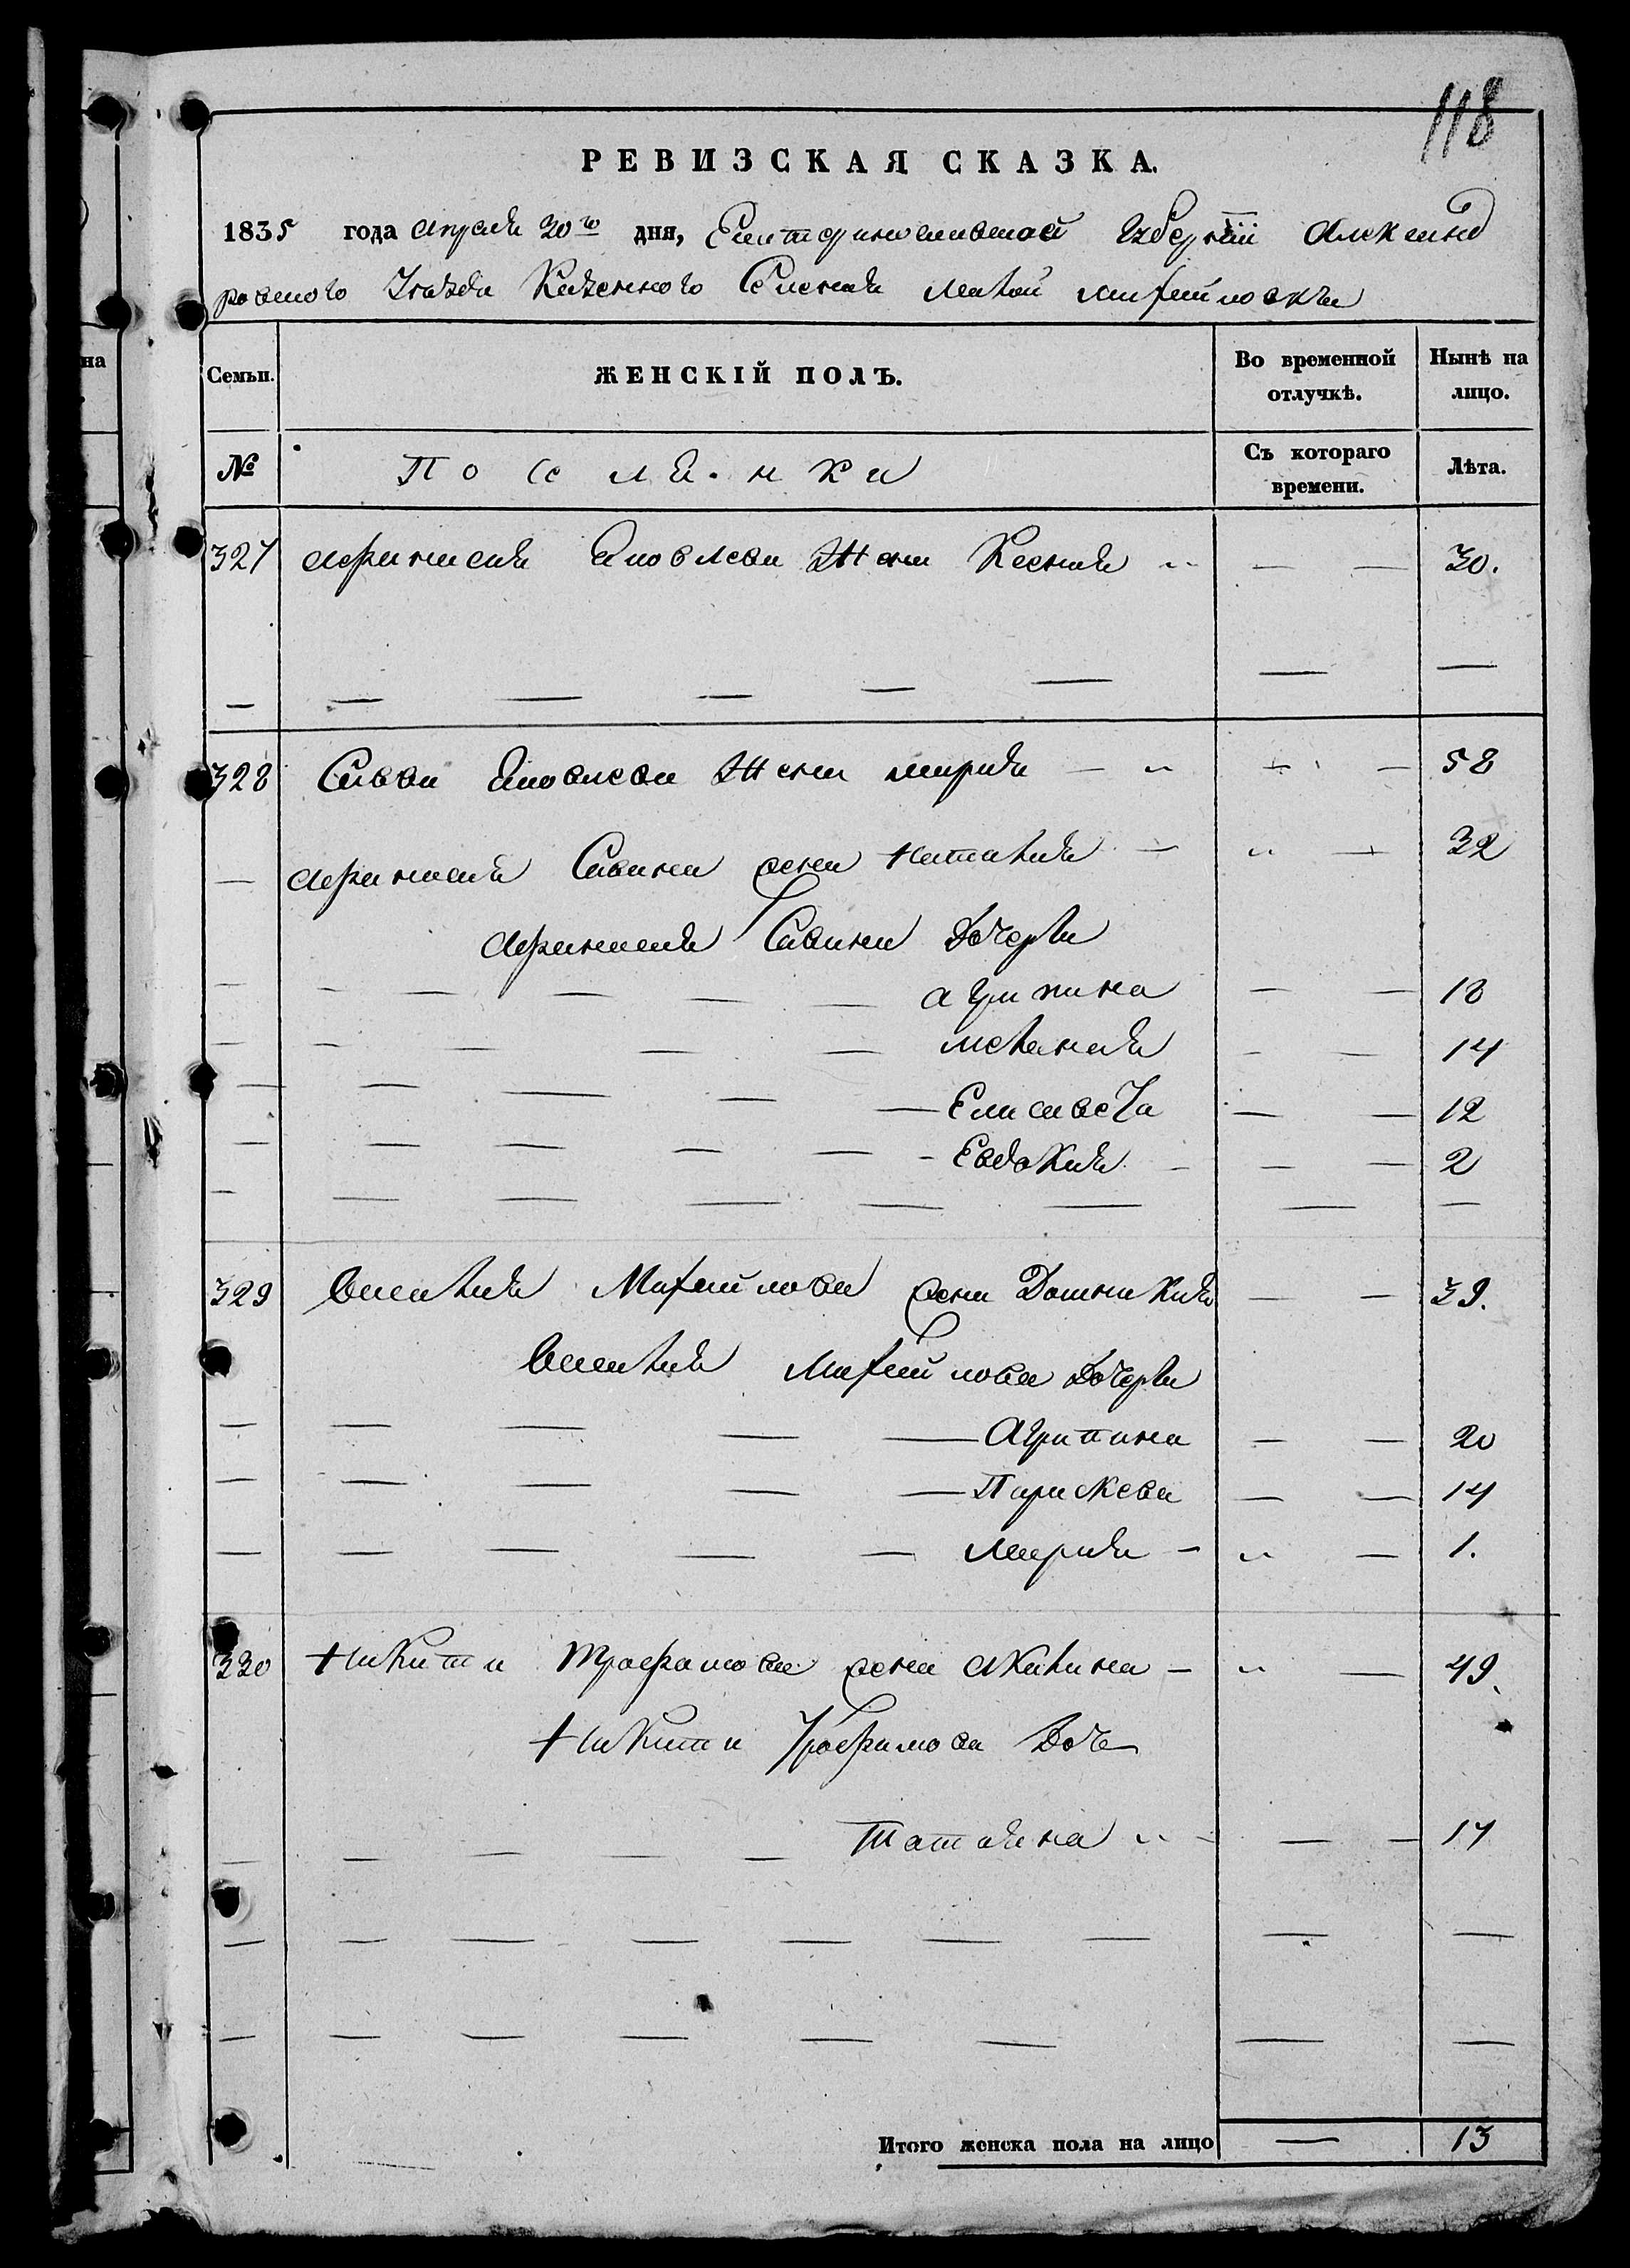 118
РЕВИЗСКАЯ СКАЗКА.
1835 года Апреля 30го дня, Екатеринославской Губернии Александ
ровского Уезда Казенного Селения Малой Михайловки
на
Семьи. ЖЕНСКІЙ ПОЛЪ. Во временной отлучкѣ. Нынѣ на лицо.
№ Поселянки Съ котораго времени. Лѣта.
327 Афанасия Яковлева Жена Ксения 30.
328 Савы Яковлева Жена мария 58
Афанасия Савина жена Наталия 32
Афанасия Савина Дочери
агрипина 18
мелания 14
Елисавета 12
Евдокия 2
329 Василия Михайлова жена Домникия 39.
Василия Михайлова Дочери
Агрипина 20
Параскева 14
Мария 1.
330 Никиты Трофимова жена Акилина 49.
Никиты Трофимова Доч
Татияна 17
Итого женска пола на лицо 13